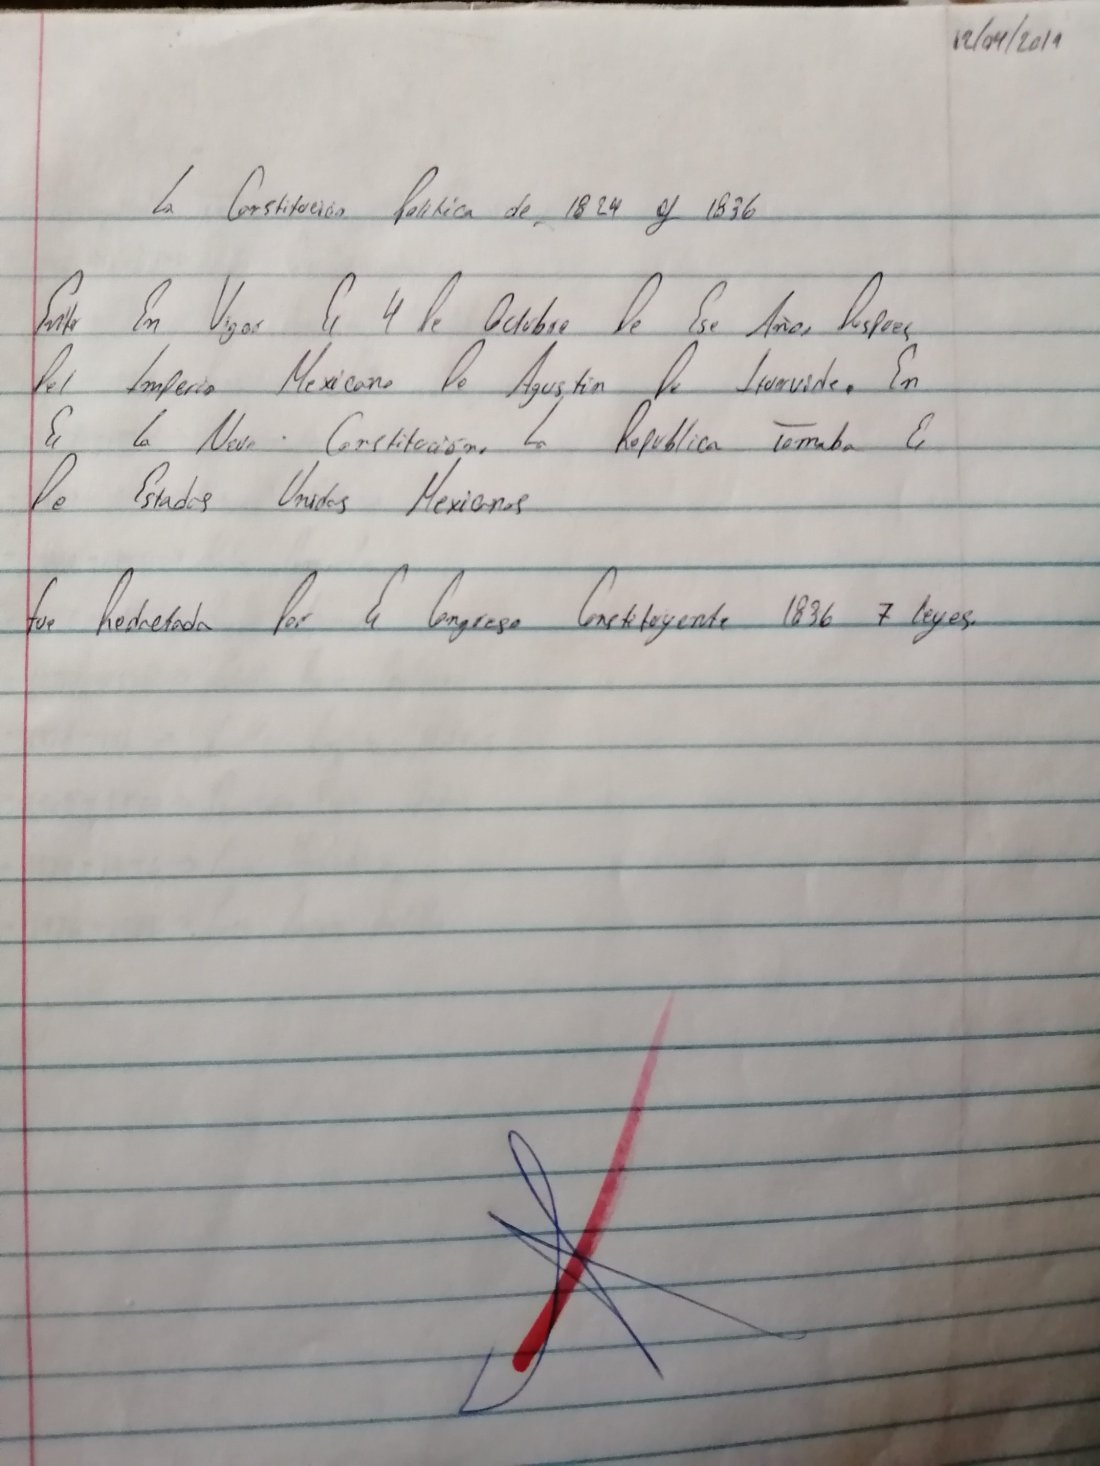 12/04/2019
La Constitución Politica de 1824 y 1836
Entro En Vigor El 4 De Octubre De Ese Año, Despues
Del Imperio Mexicano De Agustin De Iturvide. En
El La Neva Constitución, La Republica Tomaba El
De Estados Unidos Mexicanos
fue Redactada Por El Congreso Constituyente 1836 7 leyes.